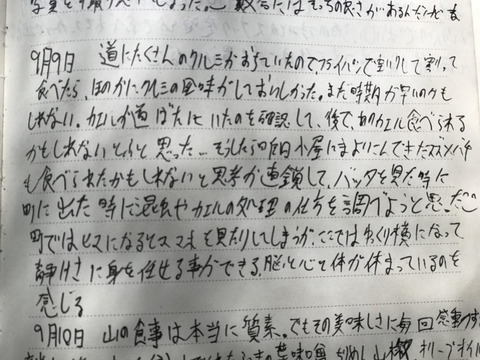 9月9日　道にたくさんのクルミがおちていたので、フライパンで空いりして割って
食べたら、ほのかにクルミの風味がしておいしかった。まだ時期が早いのかも
しれない。カエルが道ばたにいたのを確認して、後で、あのカエル食べられる
かもしれないとふと思った…そうしたら昨日小屋にまよいこんできたスズメバチ
も食べられたかもしれないと思考が連鎖して、バッタを見た時に
町に出た時に昆虫やカエルの処理の仕方を調べようと思った。
町ではヒマになるとスマホを見たりしてしまうが、ここではゆっくり横になって、
静けさに身を任せる事ができる。脳と心と体が休まっているのを
感じる
9月10日　山の食事は本当に質素。でもその美味しさに毎回感動する